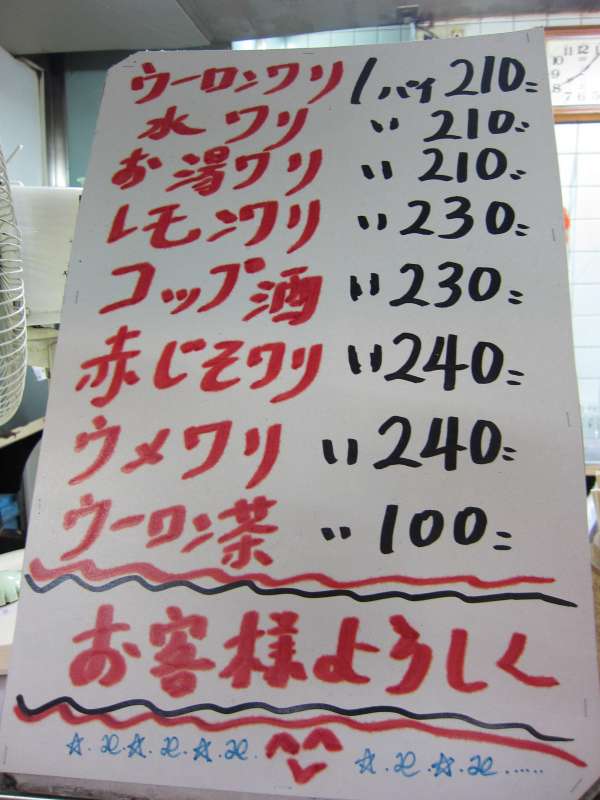 ウーロンワリ 1パイ 210=
水ワリ 〃 210=
お湯ワリ 〃 210=
レモンワリ 〃 230=
コップ酒 〃 230=
赤じそワリ 〃 240=
ウメワリ 〃 240=
ウーロン茶 〃 100=
お客様よろしく